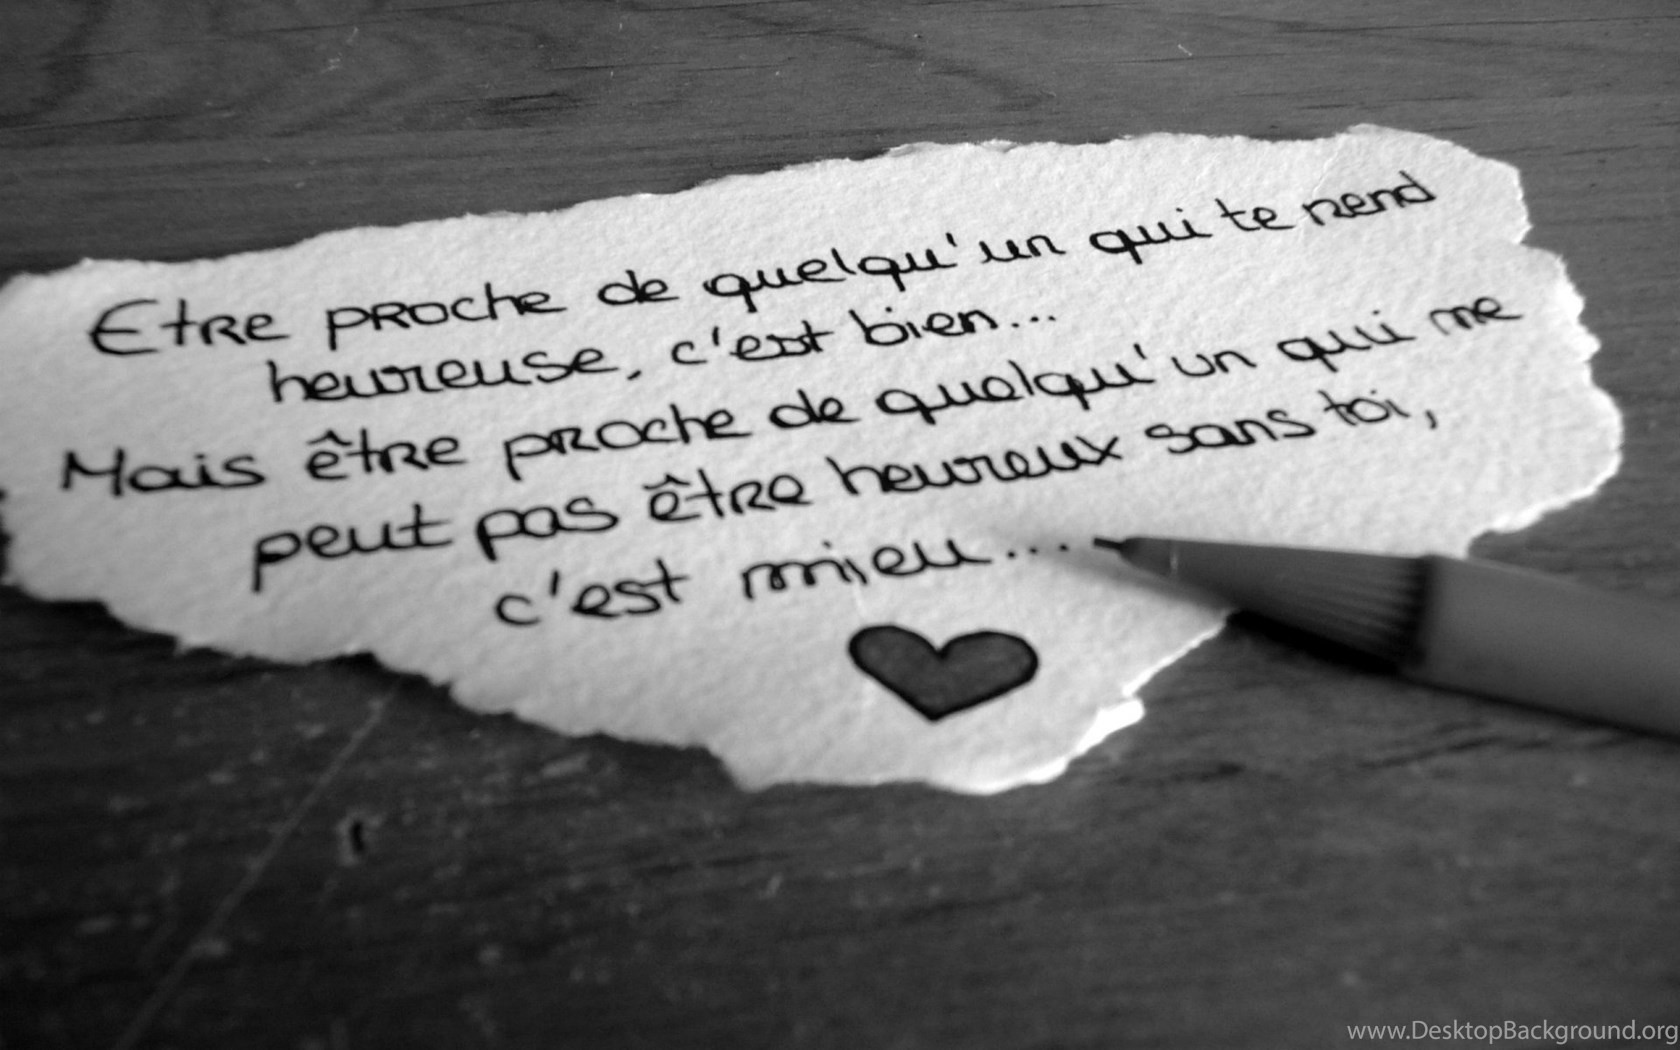 Etre proche de quelqu'un qui te rend
heureuse, c'est bien...
Mais être proche de quelqu'un qui me
peut pas être heureux sans toi,
c'est mieu....
www.DesktopBackground.org